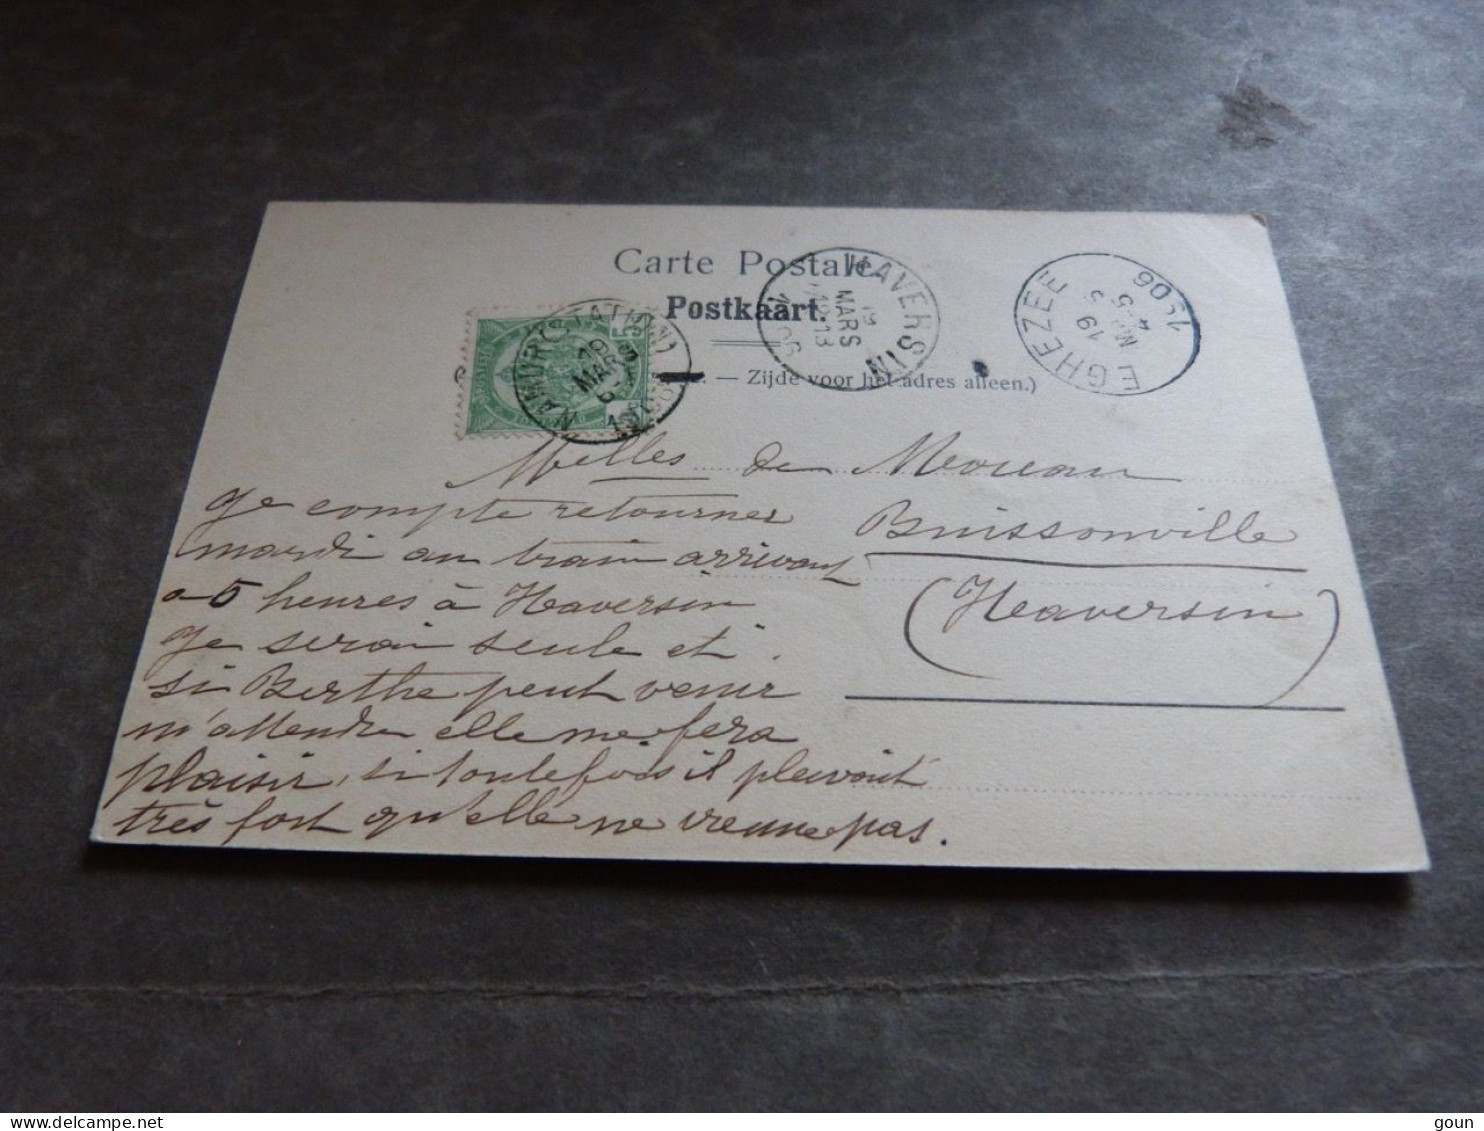 Carte Postale
Postkaart.
— Zijde voor het adres alleen.)
NAMUR (STATION)
19
MARS
6
5
HAVERSIN
19
MARS
EGHEZEE
19
4
1906
Melles de Moreau
Buissonville
(Haversin)
Je compte retourner
mardi au train arrivant
a 5 heures à Haversin
Je serai seule et
si Berthe peut venir
m'attendre elle me fera
plaisir, si toutefois il pleuvait
très fort qu'elle ne vienne pas.
https://www.delcampe.net
goun